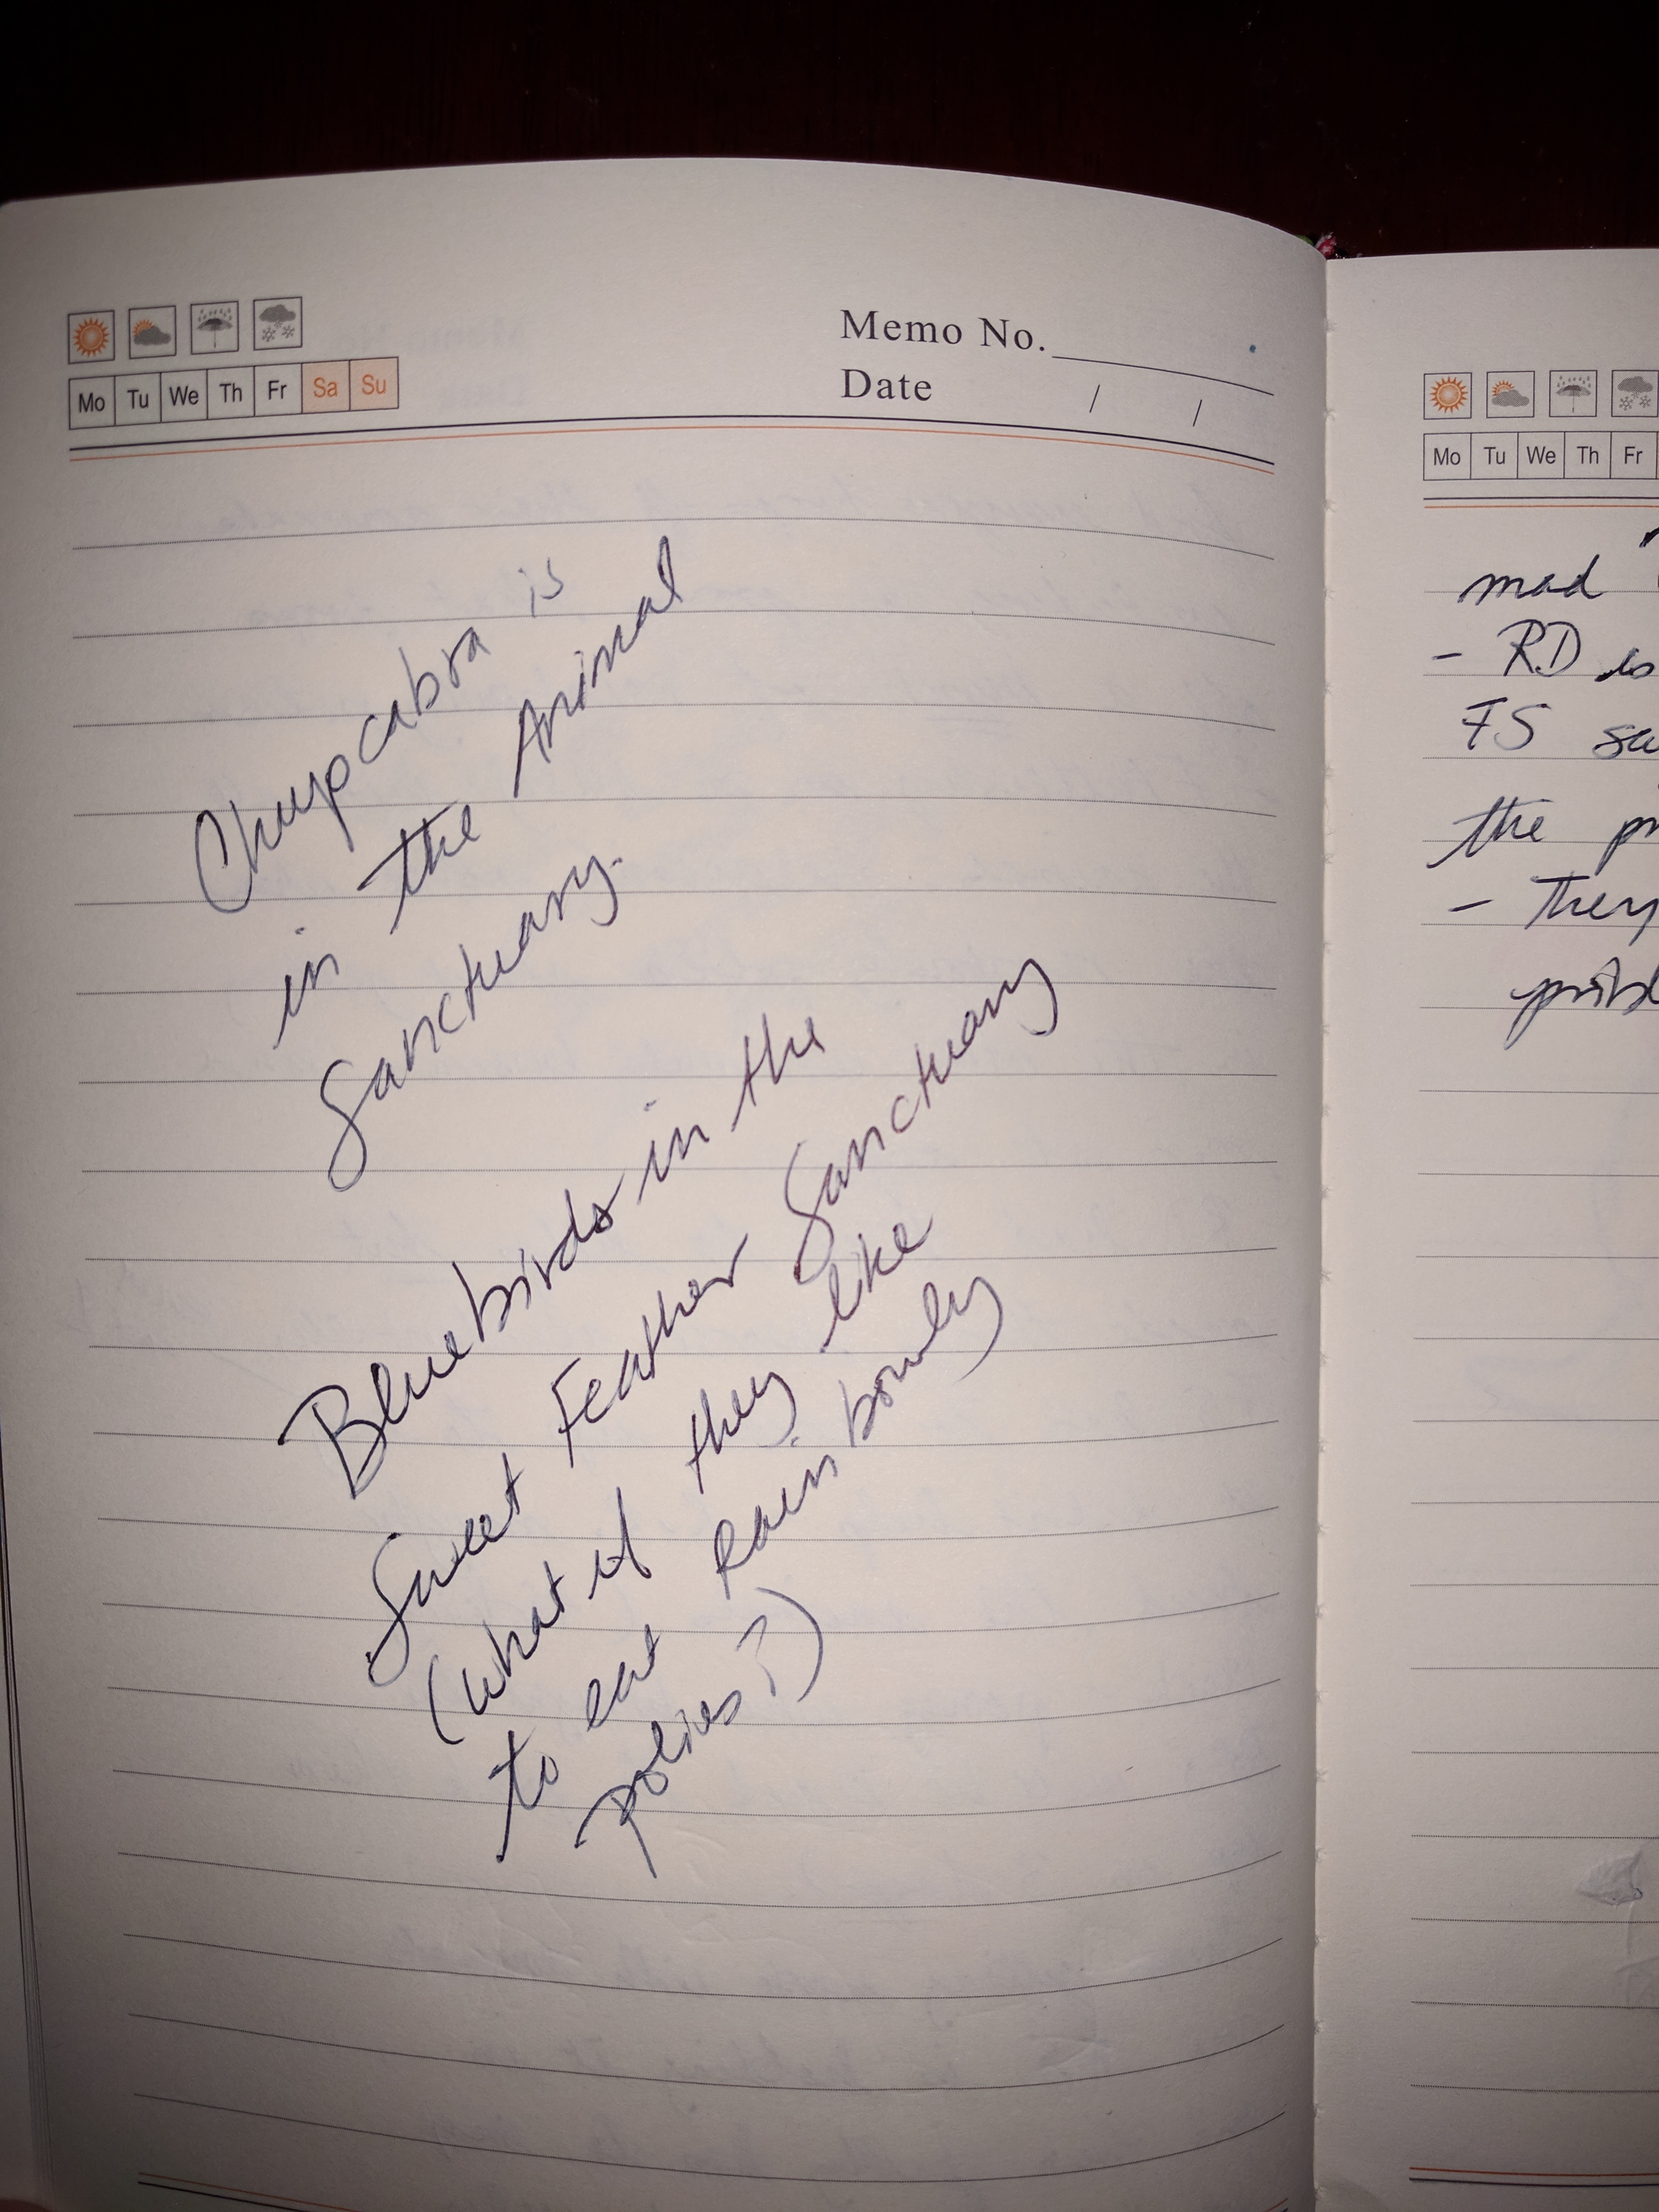 Memo No.
Date / /
Mo Tu We Th Fr Sa Su
Chupcabra is
in the Animal
Sanctuary.
Bluebirds in the
Sweet Feather Sanctuary
(what if they like
to eat Rain bowly
polies?)
Mo Tu We Th Fr
mad
- RD is
FS sa
the pr
- They